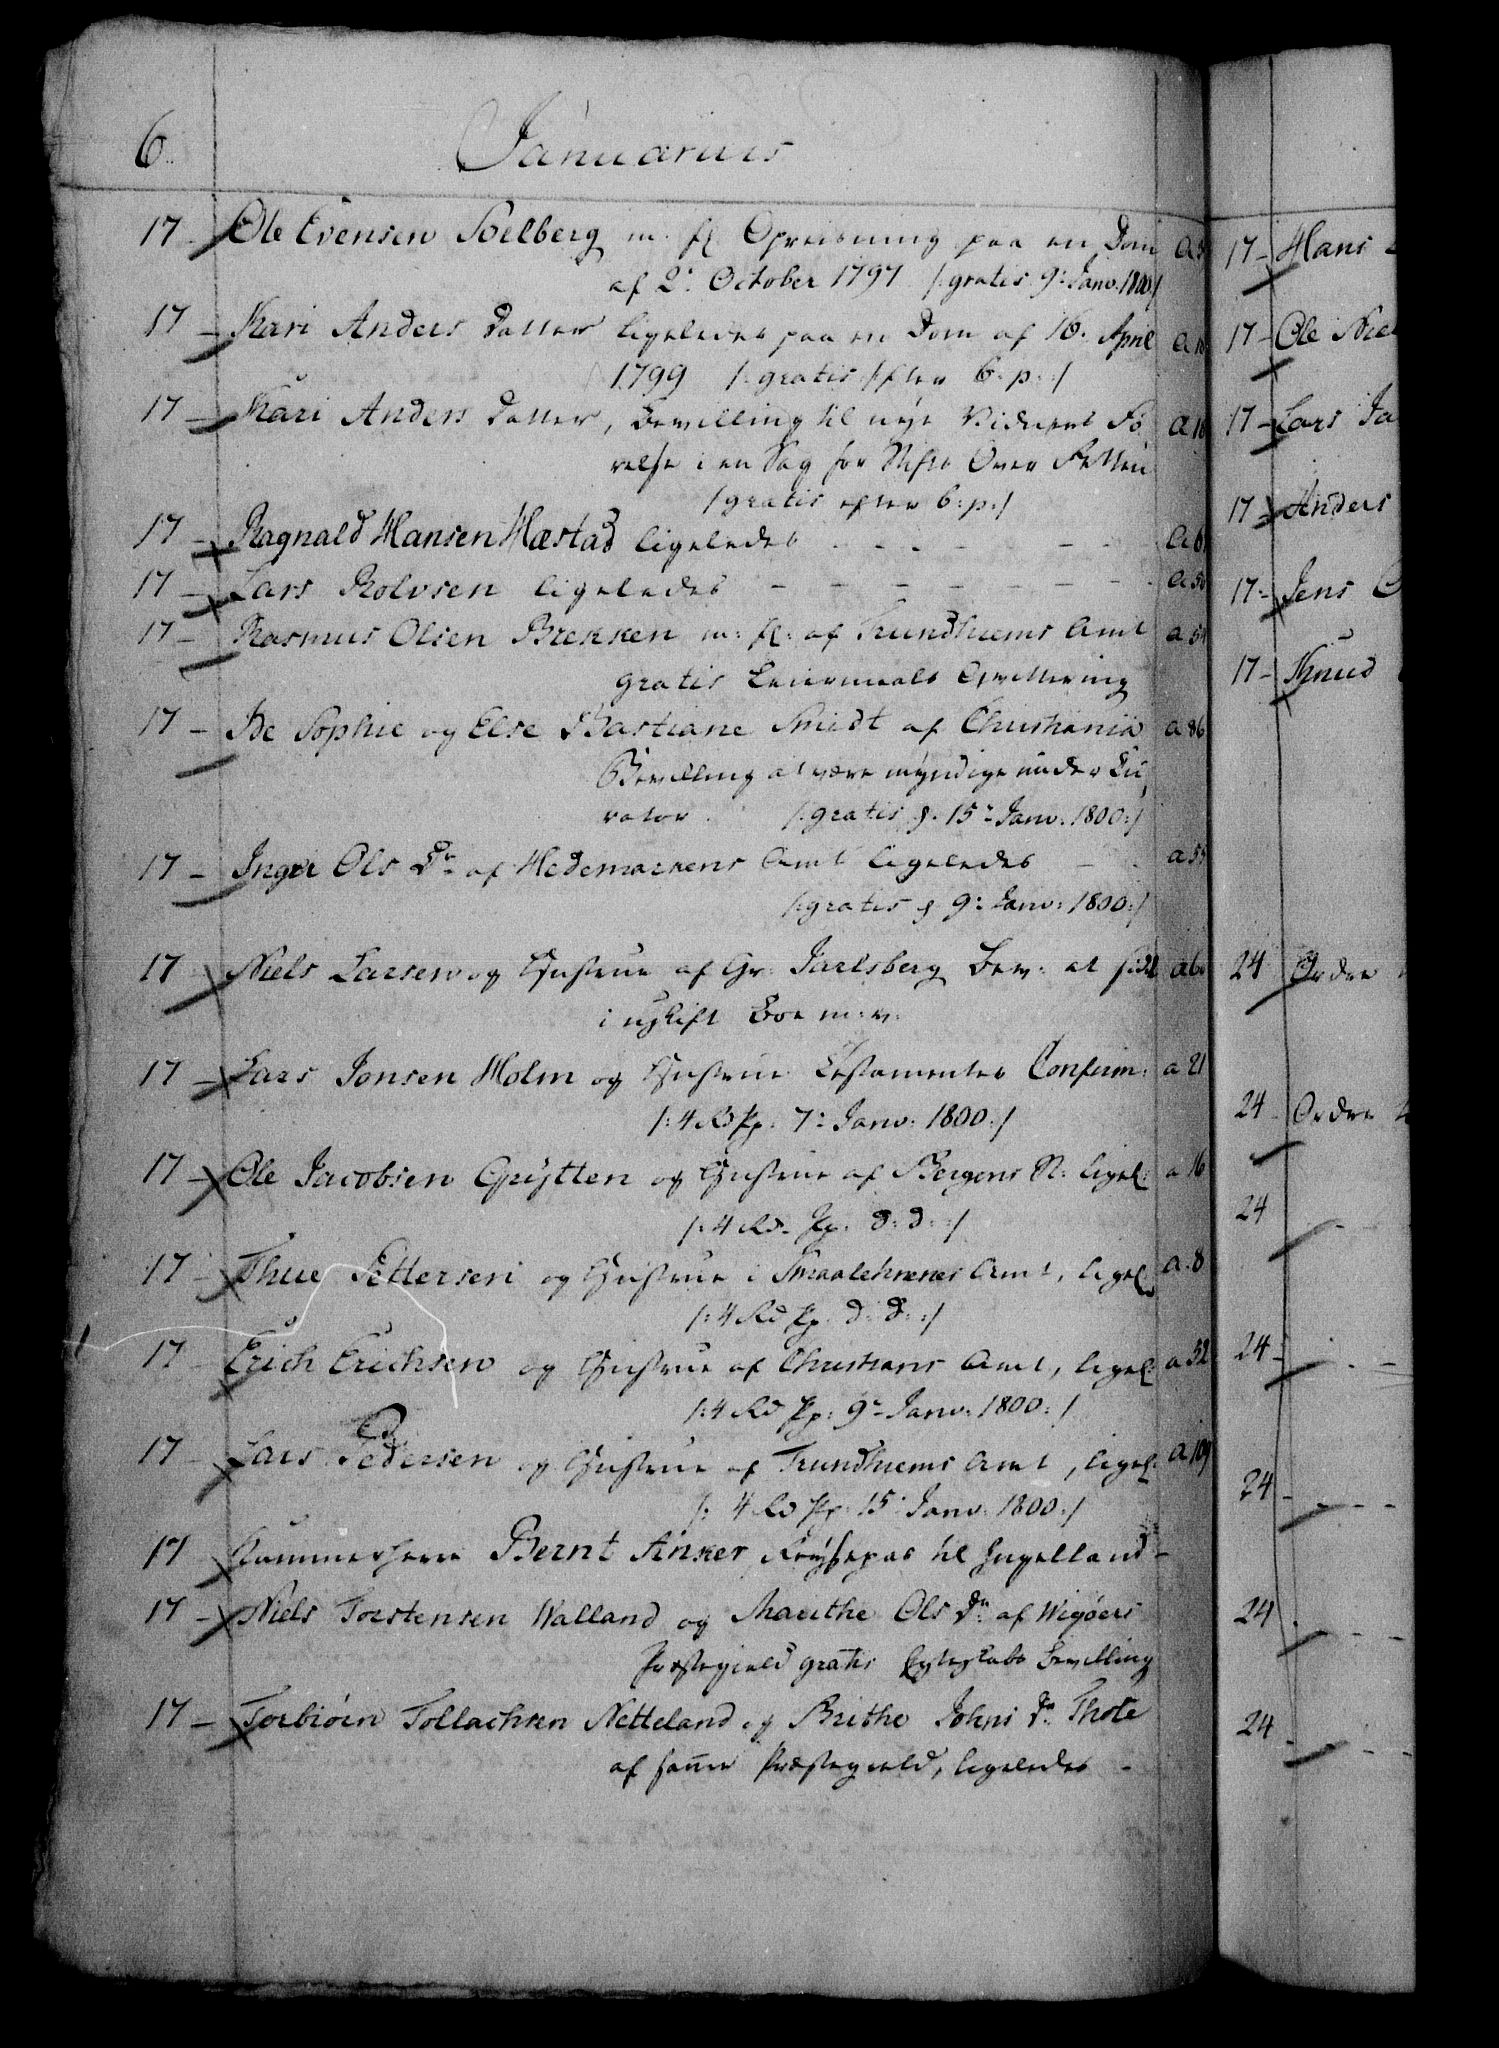 6 Januarius
17 - Ole Evensen Solberg m: fl: Opreisning paa en Dom
af 2: October 1797 /: gratis 9: Janv: 1800 :/
17 - Kari Anders Datter ligeledes paa en Dom af 16. April
1799 /: gratis efter 6: p: :/
17 - Kari Anders Datter, Bevilling til nye Vidners Fø
relse i en Sag for Stifts Over Retten
/: gratis efter 6: p: :/
17 - Ragnald Hansen Hæstad ligeledes
17 - Lars Rolvsen ligeledes
17 - Rasmus Olsen Brekken m: fl: af Trundhiems Amt a 54
gratis Leiermaals Opreisning
17 - Sophie og Else Bastiane Smidt af Christania a 86
Bevilling at være myndige under Cu
rator /: gratis 15: Janv: 1800 :/
17 - Inger Ols Dr af Hedemarkens Amt ligeledes a 55
/: gratis 9: Janv: 1800 :/
17 Niels Larsen og Hustrue af Gr: Jarlsberg Bev: at sidde
i uskift Boe m: v:
17 - Lars Jonsen Holm og Hustrue Testamentes Confirm: a 21
/: 4 Rd 7: Janv: 1800 :/
17 - Ole Jacobsen Grÿtten og Hustrue af Bergens St: ligel: a 16
/: 4 Rd d: d: :/
17 - Thue Pettersen og Hustrue i Smaalehnenes Amt, ligel: a. 8
/: 4 Rd d: d: :/
17 - Erich Erichsen og Hustrue af Christians Amt, ligel: a 32
/: 4 Rd 9: Janv: 1800 :/
17 - Lars Pedersen og Hustrue af Trundhiems Amt, ligel: a 109
/: 4 Rd 15: Janv: 1800 :/
17 Kammerherre Bernt Anker Reysepas til Engelland -
17 - Niels Torstensen Walland og Marithe Ols Dr af Wigøers
Præstegield gratis Egteskabs Bevilling
17 - Torbiörn Tollachsen Netteland og Brithe Johns Dr Thote
af samme Præstegield, ligeledes -
17 - Hans
17 - Ole Niel
17 - Lars Ja
17 - Anders
17 - Jens
17 - Knud
24 Ordre
24 - Ordre
24
24 -
24 -
24
24 -